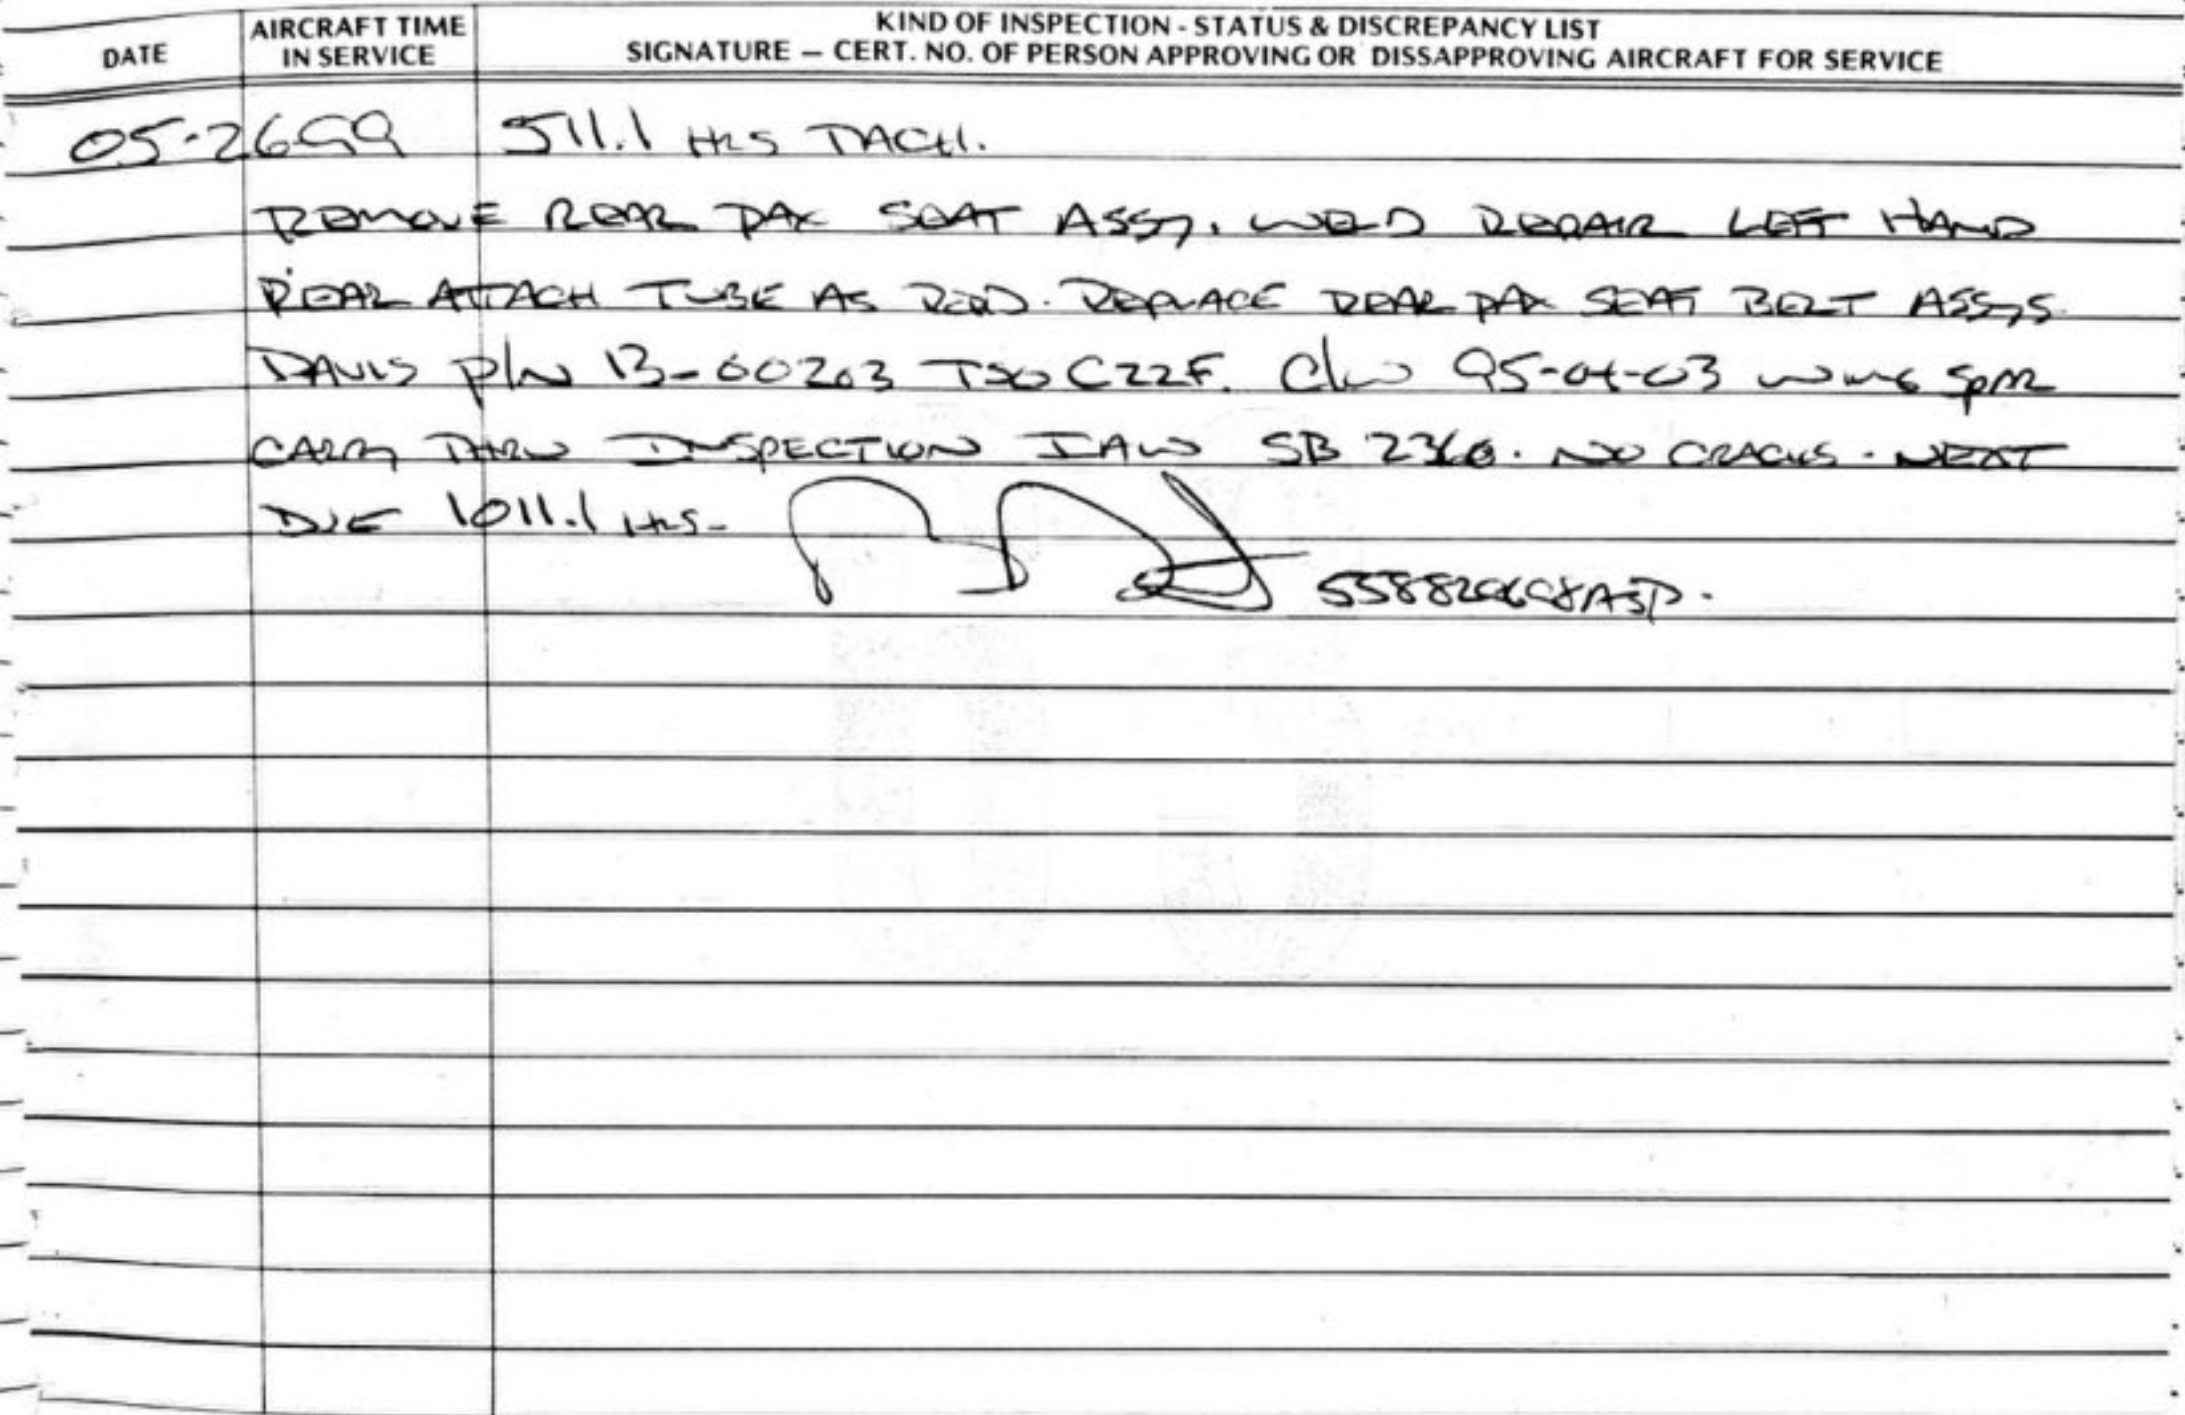 DATE
AIRCRAFT TIME
IN SERVICE
KIND OF INSPECTION - STATUS & DISCREPANCY LIST
SIGNATURE — CERT. NO. OF PERSON APPROVING OR DISSAPPROVING AIRCRAFT FOR SERVICE
05-26-99 511.1 HRS TACH.
REMOVE REAR PAX SEAT ASSY. WELD REPAIR LEFT HAND
REAR ATTACH TUBE AS REQD. REPLACE REAR PAX SEAT BELT ASSYS
DAVIS P/N TSO C22F. C/W 95-04-03 WING SPAR
CARRY THRU INSPECTION IAW SB 2360. NO CRACKS. NEXT
DUE 1011.1 HRS.